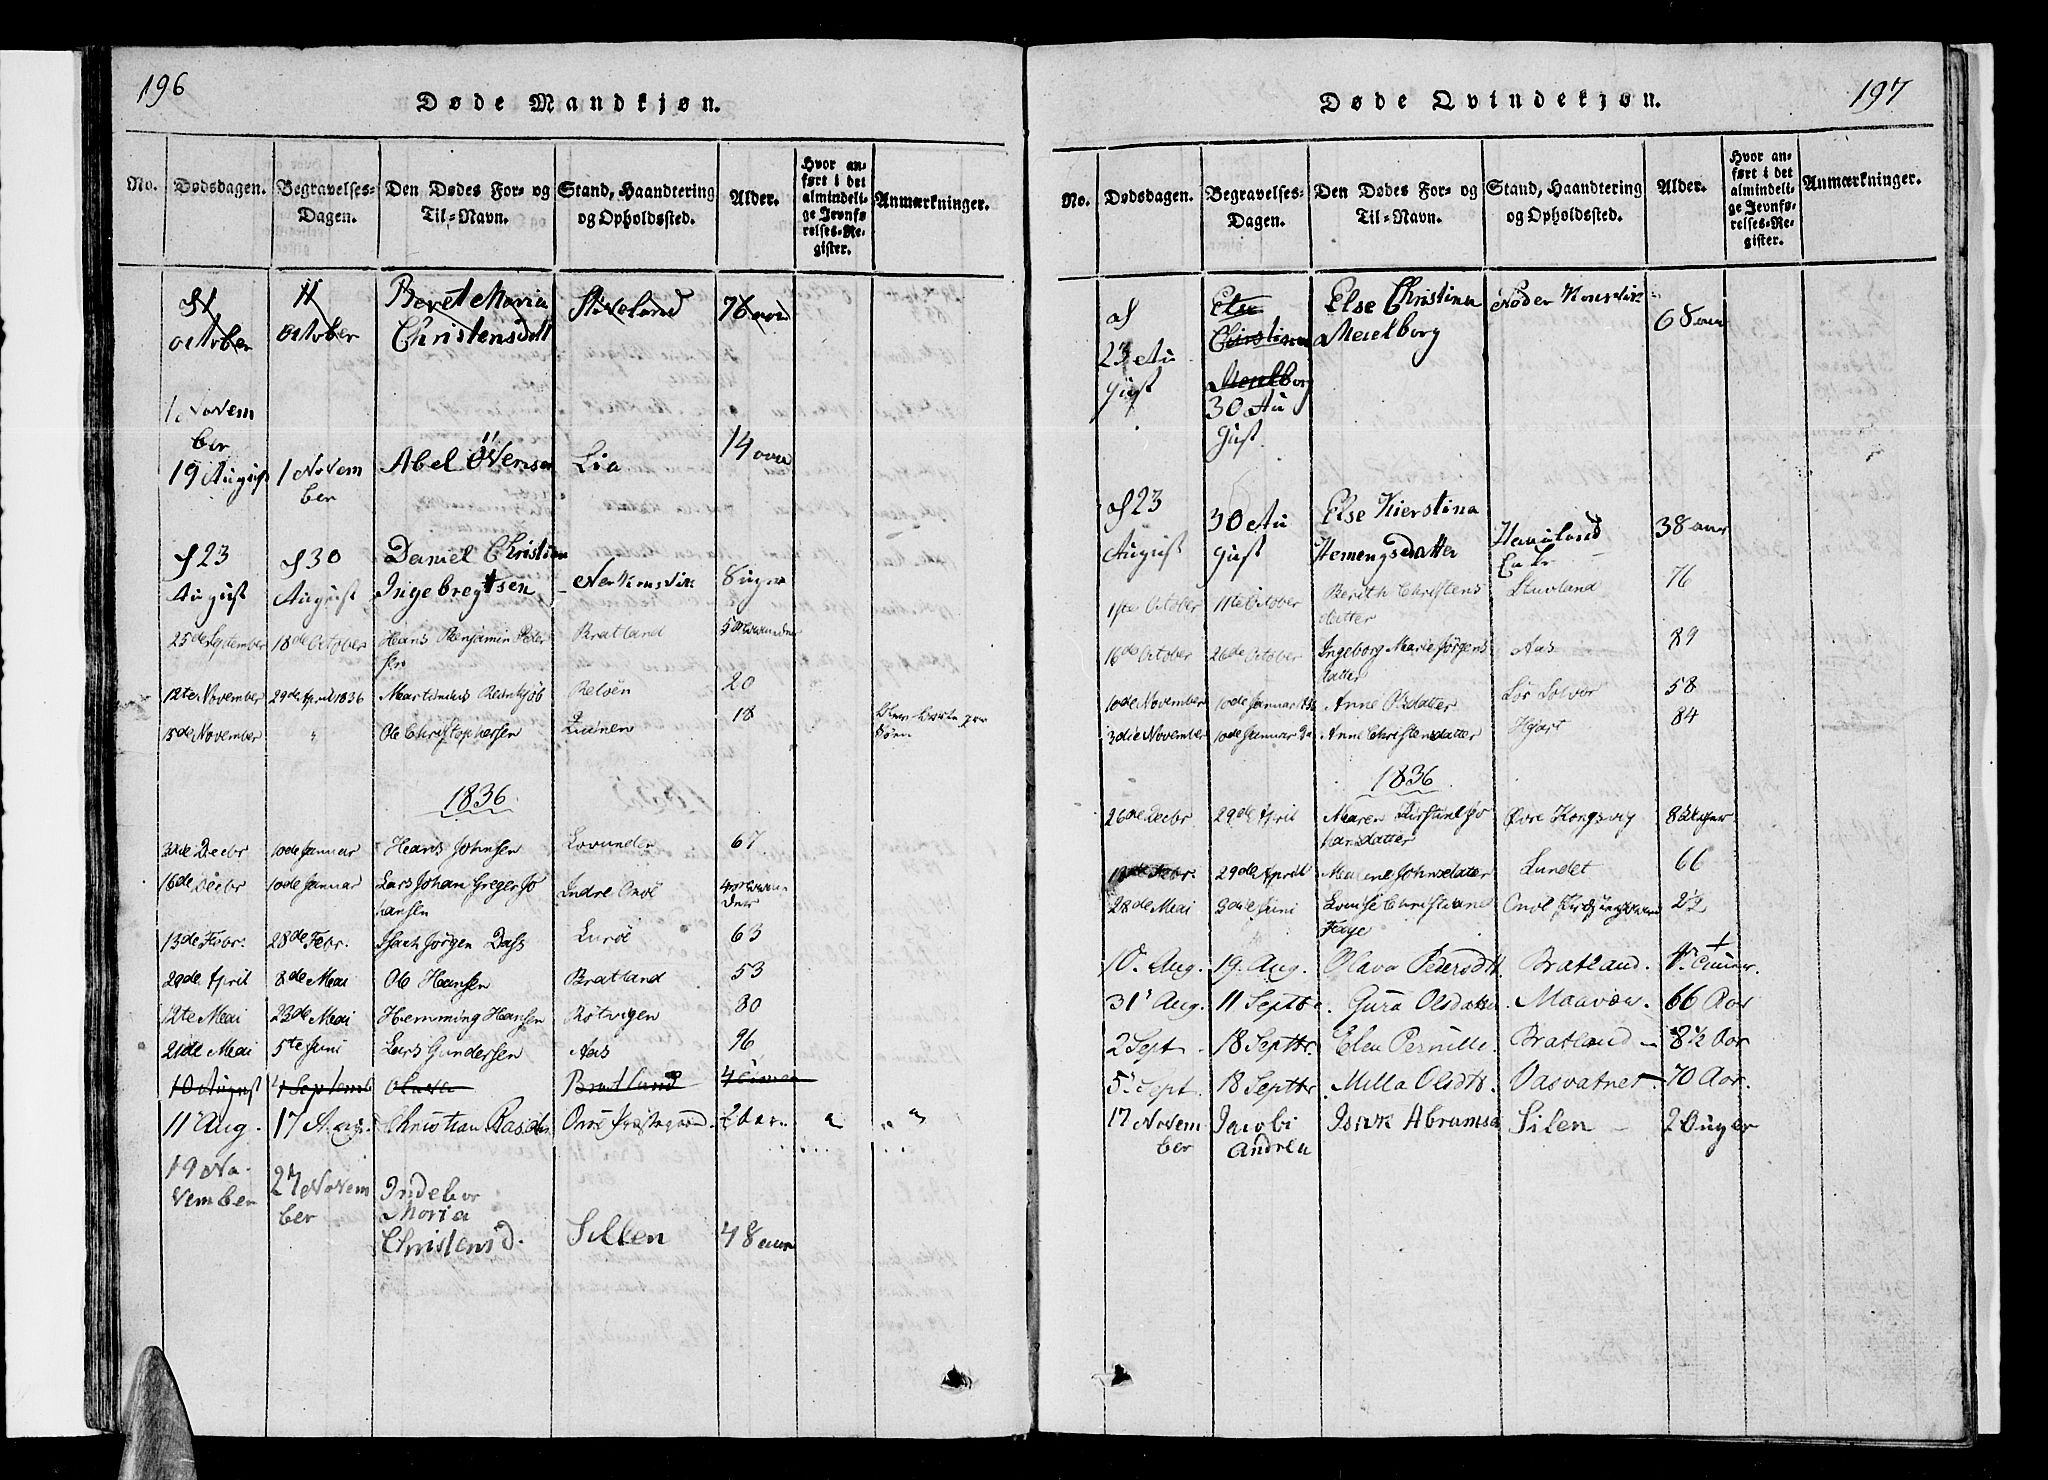 196
Døde Mandkjøn.
No.
Dødsdagen.
Begravelses-
Dagen.
Den Dødes For- og
Til-Navn.
Stand, Haandtering
og Opholdssted.
Alder.
Hvor an-
ført i det
almindeli-
ge Jevnfø-
relses-Re-
gister.
Anmærkninger.
october
11 october
Beret Maria
Christensdtt
1 Novem
ber
19 August
1 Novem
ber
Abel Övensen
Lia
14 aar
23 August
30 August
Daniel Christian
Ingebregtsen
Nerkonsvik
25de September
18de October
Hans Benjamin Peder
sen
Bratland
12te November
29de April 1836
Martinus
Reløen
20
November
"
Ole Christophersen
18
1836.
Decbr
10de Januar
Hans Johnsen
Lovunden
67
16de Decbr
10de Januar
Lars Johan Greger Jo
hansen
Indre Onöi
13de Febr.
28de Febr.
Isach Jörgen Dass
Luröe
63
29de April
8de Mai
Ole Hansen
Bratland
53
12te Mai
23de Mai
Hemming Hansen
Rötvigen
80
21de Mai
5te Juni
Lars Gundersen
Aas
96
10 August
4 Septemb
Olava
Bratland
11 Aug.
17 Aug.
Christian
"
19 No-
vember
27 Novem
ber
Maria
Christensd.
Sillen
48 aar
197
Døde Qvindekjøn.
No.
Dødsdagen.
Begravelses-
Dagen.
Den Dødes For- og
Til-Navn.
Stand, Haandtering
og Opholdssted.
Alder.
Hvor an-
ført i det
almindeli-
ge Jevnfø-
relses-Re-
gister.
Anmærkninger.
23 Au
gust
Else
Christina
Meulborg
30 Au
gust
Else Christina
Meulborg
Nöder Konsvik
68 aar
23
August
30 Au
gust
Else Kierstina
Hemengsdatter
Enke
38 aar
1ste October
11te October
Berith Christens
datter
Stuvland
76
16de October
26de October
Ingeborg Marie Jörgens
datter
Aas
89
10de November
10de Januar
Anne Olsdatter
58
3die November
10de Januar
Anne Christensdatter
Hjart
84
1836
26de Decbr
29de April
Maren Kirstine Jo
hansdatter
Øvre Kongsvig
Febr.
29de April
Malene Johnsdatter
Lundet
66
28de Mai
3die Juni
Lovise Christiane
Faye
10. Aug.
19. Aug.
Olava Pedersdtt
Bratland.
31 Aug.
11 Septbr.
Gura Olsdatter
66 Aar
2 Sept
18 Septbr.
Elen Pernille.
Bratland
8½ Aar
5 Sept.
18 Septbr.
Milla Olsdtr.
Vasvatnet
70 Aar.
17 Novem
ber
Jacobi
Andrea
Isack Abramsen
Silen